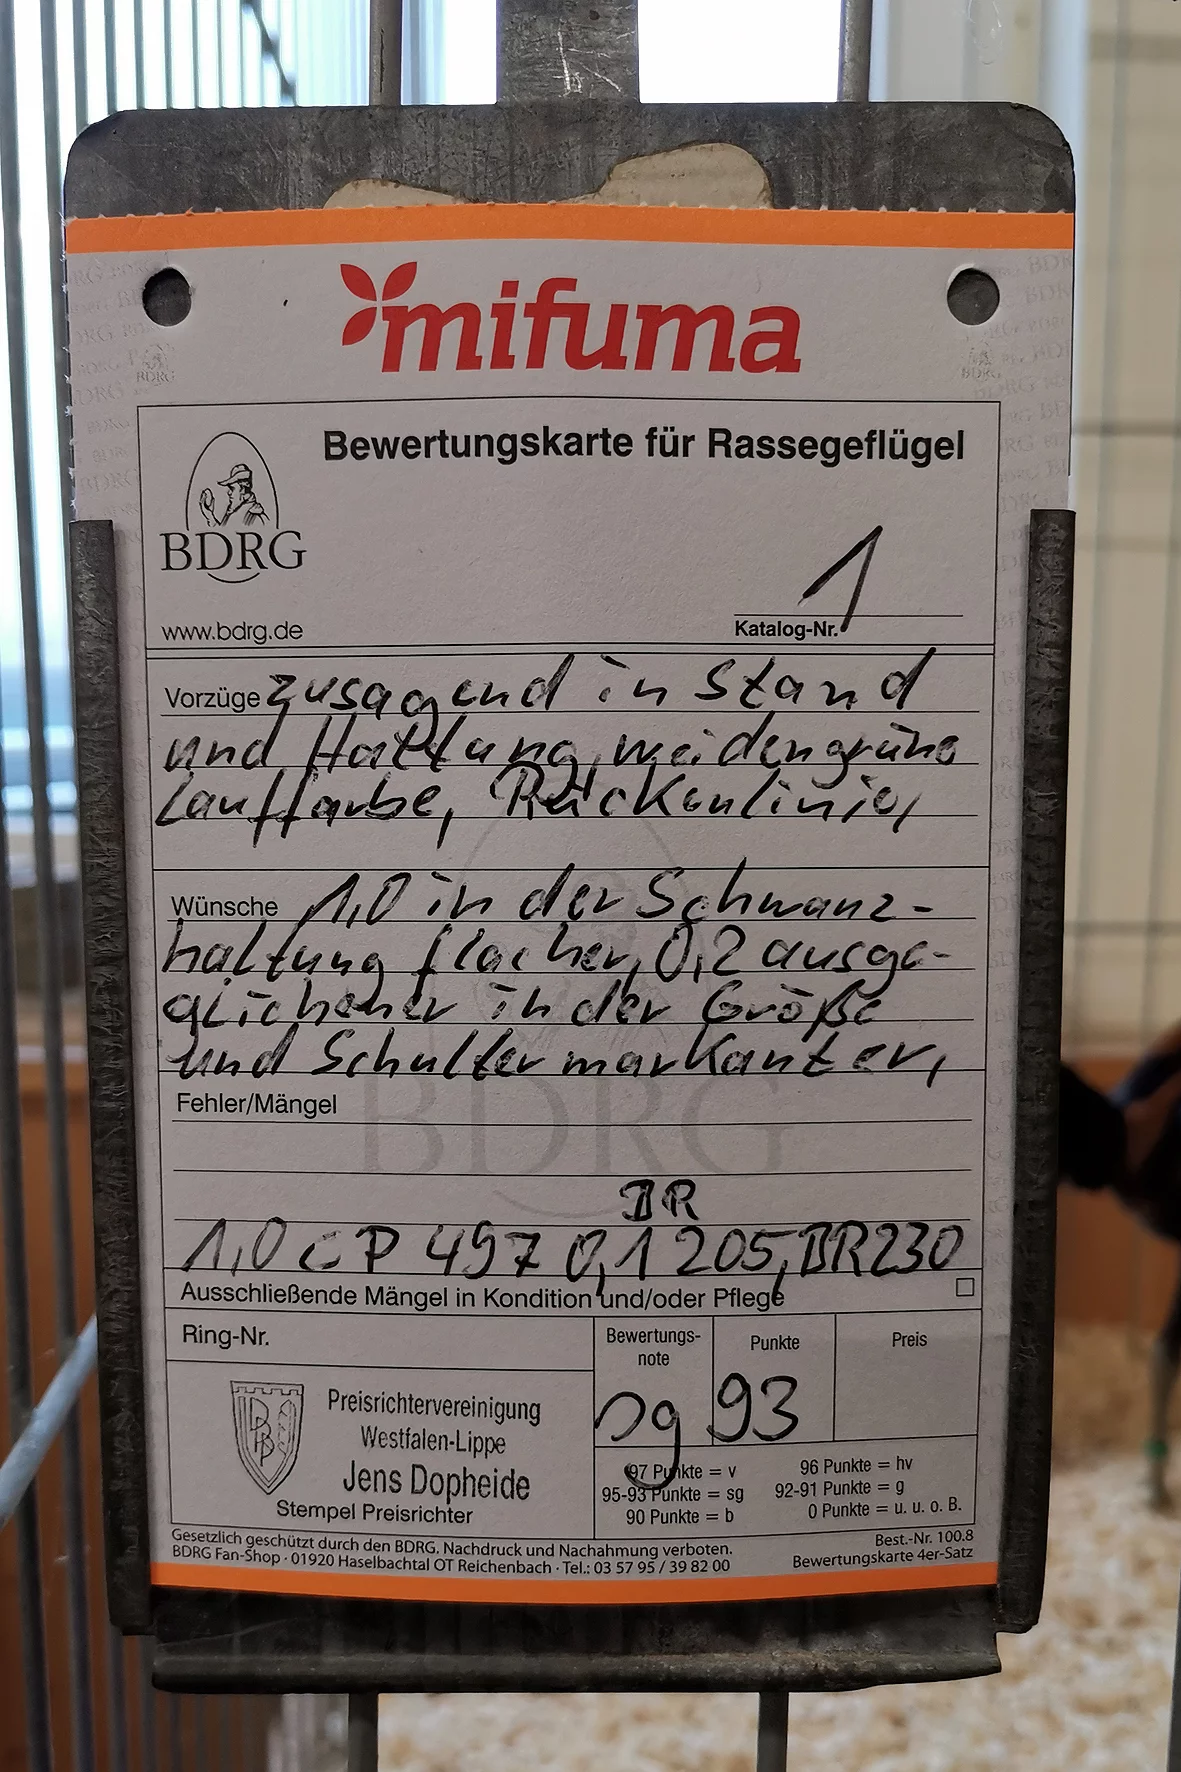 mifuma
Bewertungskarte für Rassegeflügel
BDRG
www.bdrg.de
1
Katalog-Nr.
Vorzüge zusagend in Stand
und Haltung, weidengrüne
Lauffarbe, Rückenlinie,
Wünsche 1,0 in der Schwanz-
haltung flacher, 0,2 ausge-
glichener in der Größe
und Schulter markanter,
Fehler/Mängel
BR
1,0 CP 497 0,1 205, BR230
Ausschließende Mängel in Kondition und/oder Pflege
Ring-Nr.
Bewertungs-
note
Punkte
Preis
sg
93
Preisrichtervereinigung
Westfalen-Lippe
Jens Dopheide
Stempel Preisrichter
97 Punkte = v
96 Punkte = hv
95-93 Punkte = sg
92-91 Punkte = g
90 Punkte = b
0 Punkte = u. u. o. B.
Gesetzlich geschützt durch den BDRG. Nachdruck und Nachahmung verboten.
BDRG Fan-Shop · 01920 Haselbachtal OT Reichenbach · Tel.: 03 57 95 / 39 82 00
Best.-Nr. 100.8
Bewertungskarte 4er-Satz